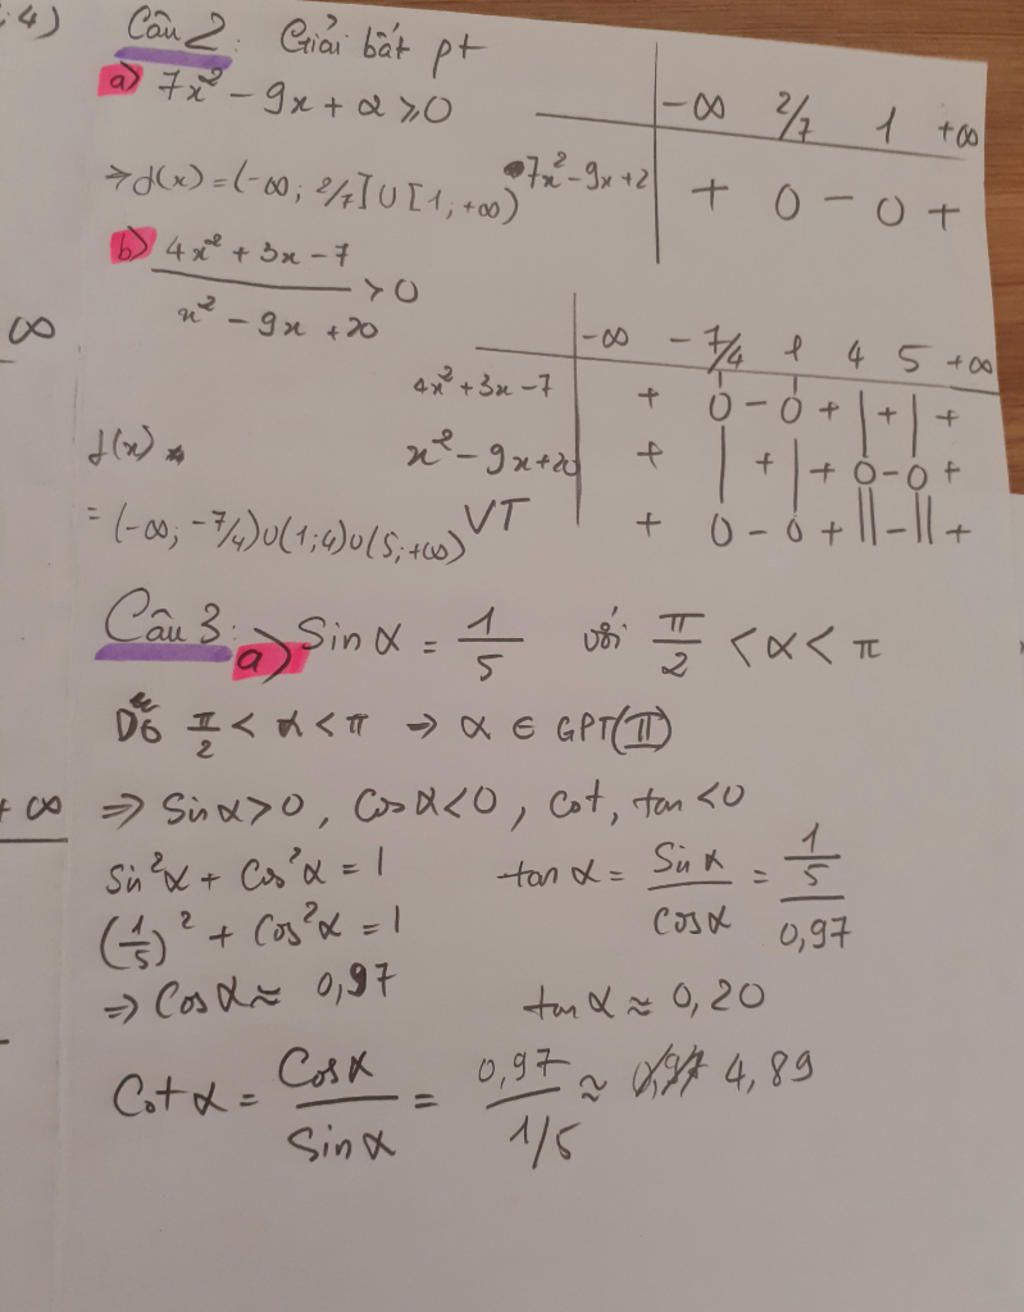 ;4)
Câu 2: Giải bất pt
a) 7x² - 9x + 2 ≥ 0
-∞ 2/7 1 +∞
7x² - 9x + 2 + 0 - 0 +
⇒ f(x) = (-∞; 2/7] ∪ [1; +∞)
b) (4x² + 3x - 7)/(x² - 9x + 20) > 0
∞
-∞ -7/4 1 4 5 +∞
4x² + 3x - 7 + 0 - 0 + | + | +
x² - 9x + 20 + | + | + 0 - 0 +
VT + 0 - 0 + || - || +
f(x)
= (-∞; -7/4) ∪ (1; 4) ∪ (5; +∞)
Câu 3: a) Sin α = 1/5 với π/2 < α < π
π/2 < α < π → α ∈ GPT(II)
+ ∞
⇒ Sin α > 0, Cos α < 0, Cot, tan < 0
Sin²α + Cos²α = 1
tan α = Sin α / Cos α = (1/5)/0,97
(1/5)² + Cos²α = 1
⇒ Cos α ≈ 0,97
tan α ≈ 0,20
Cot α = Cos α / Sin α = 0,97 / 1/5 ≈ 4,89